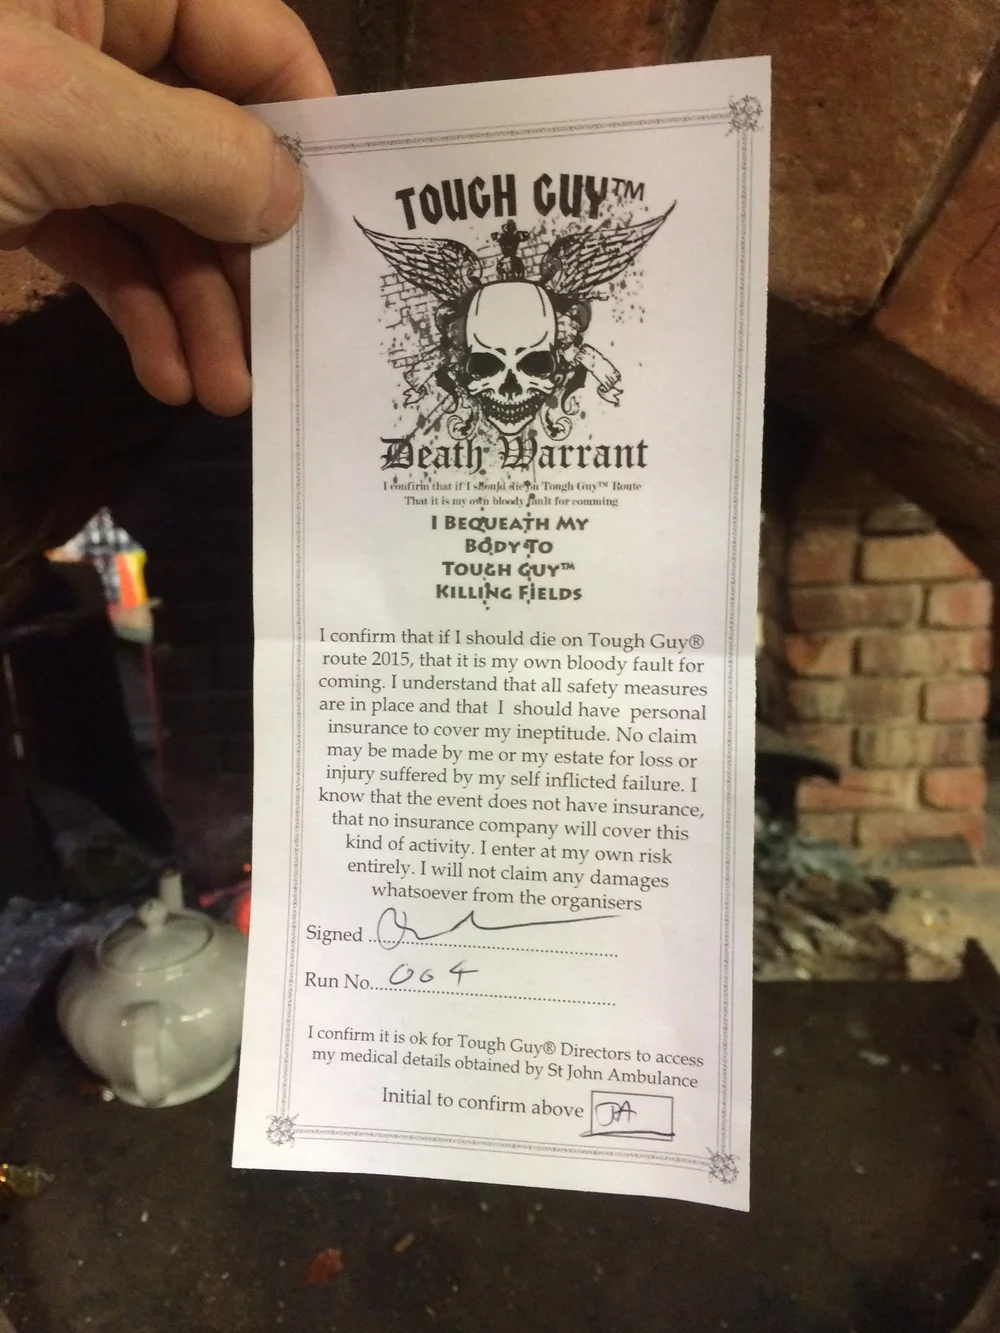 TOUGH GUY™
Death Warrant
I confirm that if I should die on Tough Guy™ Route
That it is my own bloody fault for comming
I BEQUEATH MY
BODY TO
TOUGH GUY™
KILLING FIELDS
I confirm that if I should die on Tough Guy®
route 2015, that it is my own bloody fault for
coming. I understand that all safety measures
are in place and that I should have personal
insurance to cover my ineptitude. No claim
may be made by me or my estate for loss or
injury suffered by my self inflicted failure. I
know that the event does not have insurance,
that no insurance company will cover this
kind of activity. I enter at my own risk
entirely. I will not claim any damages
whatsoever from the organisers
Signed
Run No... 064
I confirm it is ok for Tough Guy® Directors to access
my medical details obtained by St John Ambulance
Initial to confirm above JA